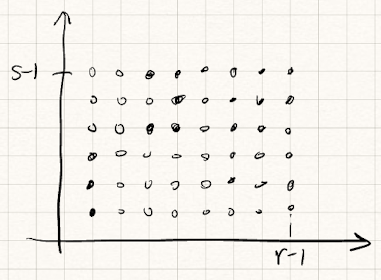 s-1
r-1